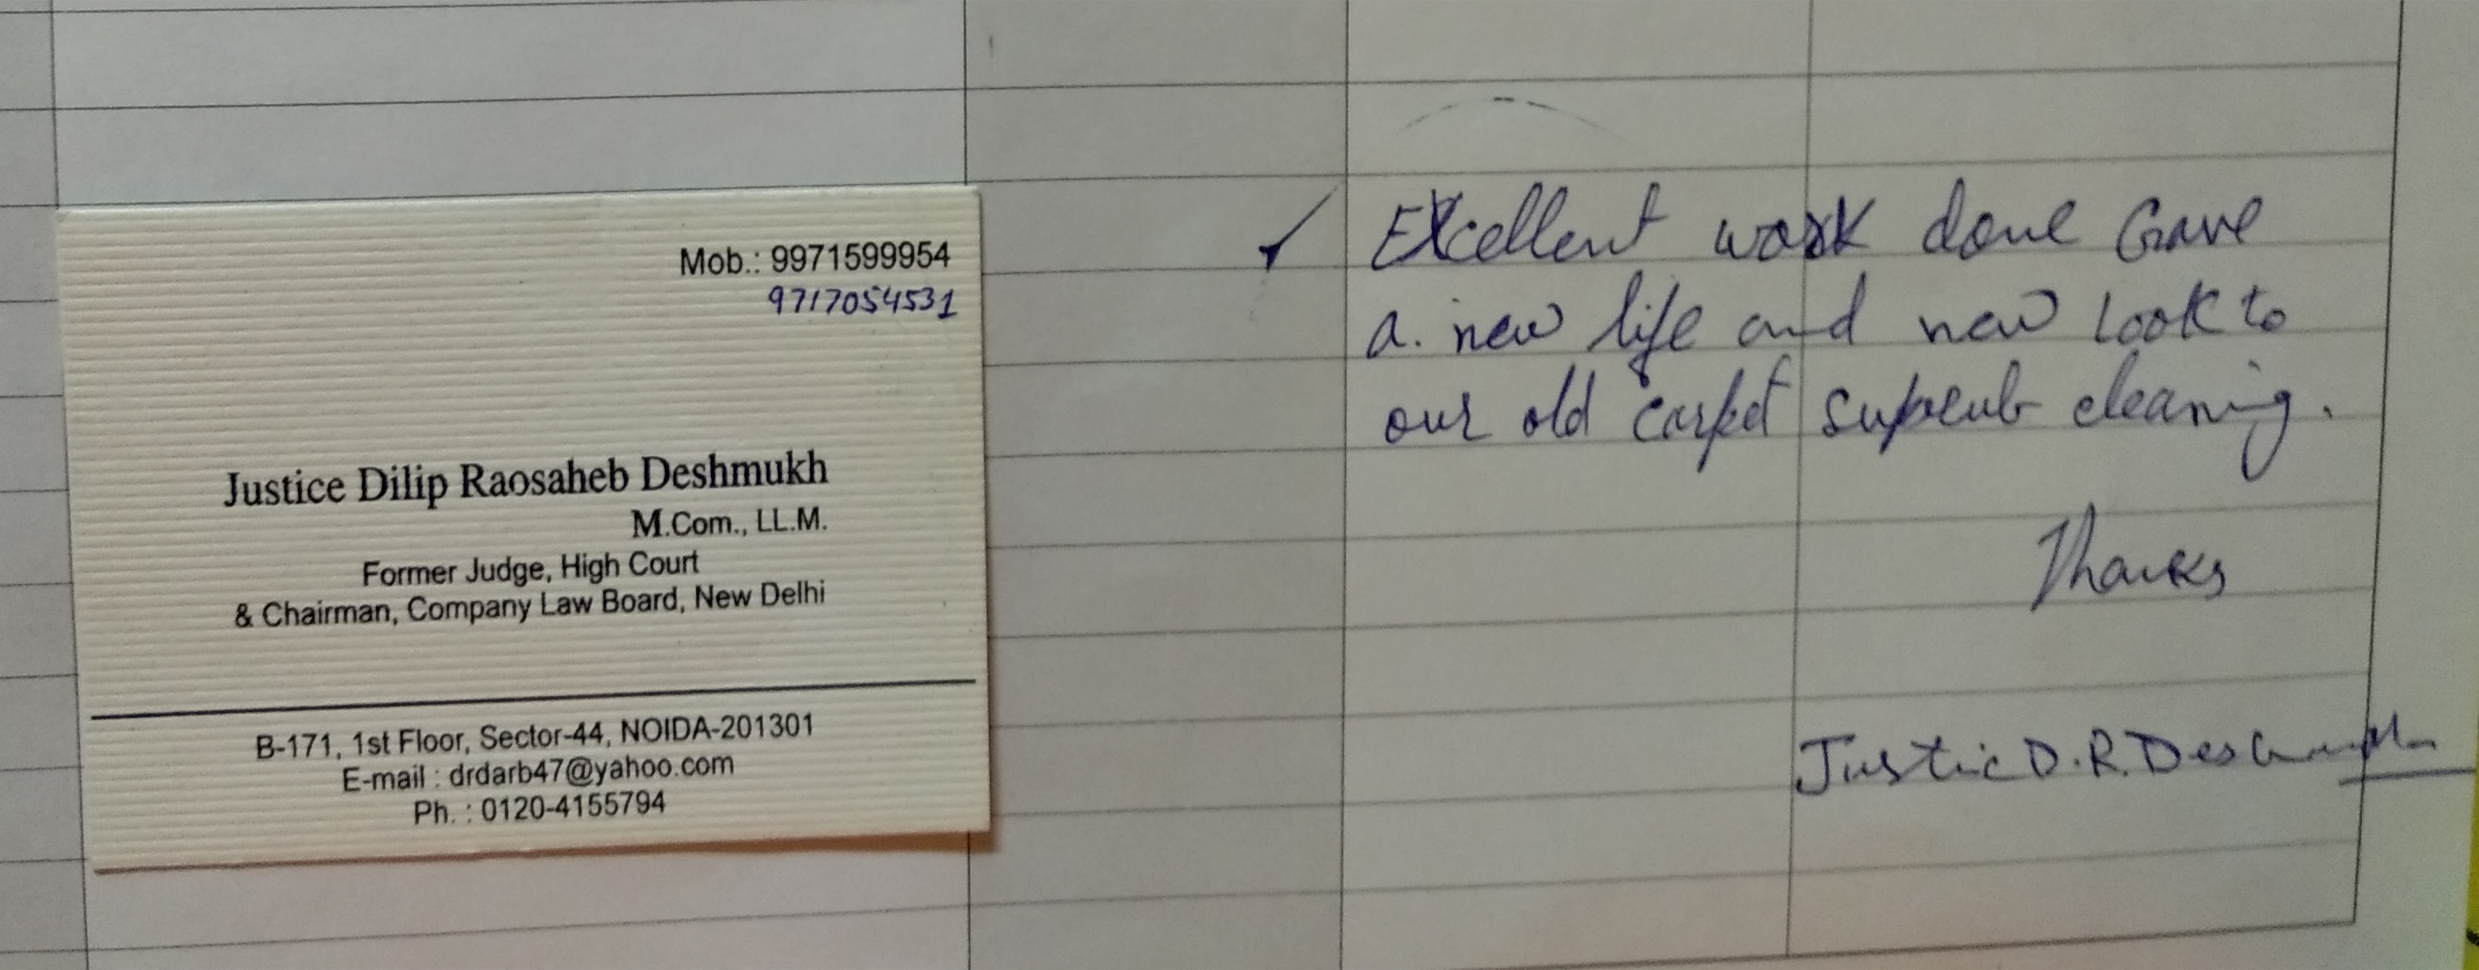 Mob.: 9971599954
9717054531
Justice Dilip Raosaheb Deshmukh
M.Com., LL.M.
Former Judge, High Court
& Chairman, Company Law Board, New Delhi
B-171, 1st Floor, Sector-44, NOIDA-201301
E-mail : drdarb47@yahoo.com
Ph. : 0120-4155794
Excellent work done Gave
a. new life and new look to
our old carpet superb cleaning.
Thanks
Justic D.R. Deshmukh